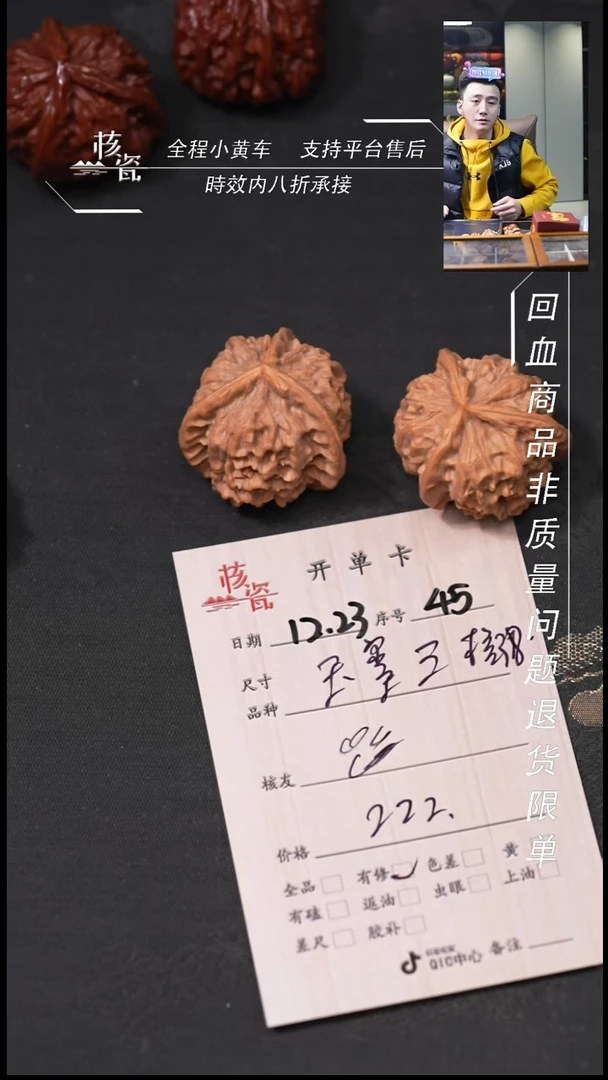 核瓷
全程小黄车 支持平台售后
時效内八折承接
回血商品非质量问题退货限单
核瓷
开单卡
日期 12.23 序号 45
尺寸
品种
核友
价格 222.
全品 有修 色差 黄
有磕 返油 虫眼 上油
差尺 胶补
QIC中心 备注